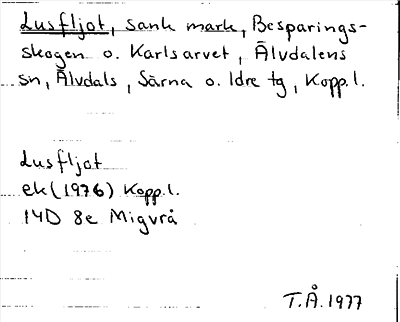 Lusfljot, sank mark, Besparings-
skogen o. Karlsarvet, Älvdalens
sn, Älvdals, Särna o. Idre tg, Kopp.l.
Lusfljot
ek (1976) Kopp.l.
14D 8e Migvrå
T.Å.1977